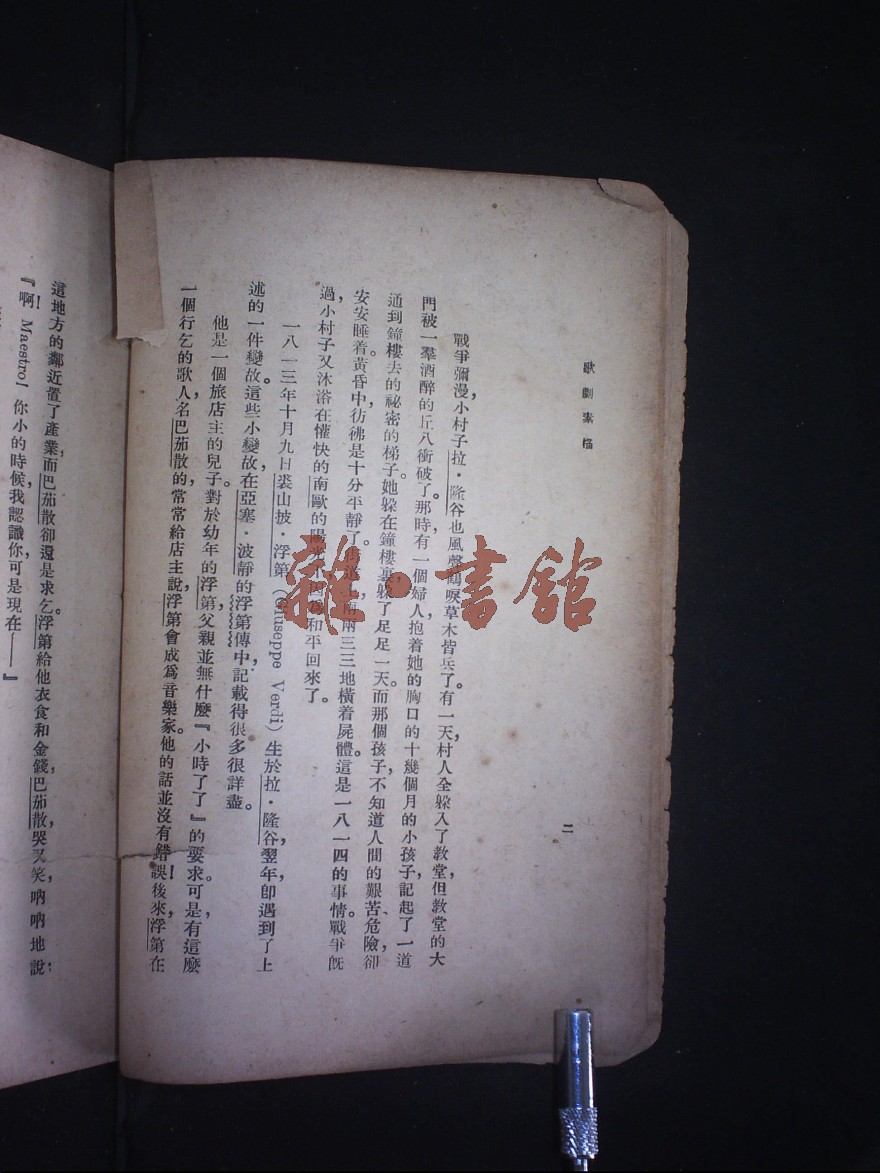 歌劇素描
二
戰爭彌漫，小村子拉·隆谷也風聲鶴唳草木皆兵了。有一天，村人全躲入了教堂，但教堂的大
門被一羣酒醉的丘八衝破了。那時有一個婦人抱着她的胸口的十幾個月的小孩子，記起了一道
通到鐘樓去的祕密的梯子。她躲在鐘樓裏，躲了足足一天。而那個孩子，不知道人間的艱苦、危險，卻
安安睡着。黃昏中，彷彿是十分平靜了。街道上兩兩三三地橫着屍體。這是一八一四的事情。戰爭旣
過，小村子又沐浴在懽快的南歐的陽光下，因爲和平回來了。
一八一三年十月九日，裘山披·浮第（Giuseppe Verdi）生於拉·隆谷，翌年卽遇到了上
述的一件變故。這些小變故在亞塞·波靜的浮第傳中，記載得很多很詳盡。
他是一個旅店主的兒子。對於幼年的浮第，父親並無什麼『小時了了』的要求。可是，有這麼
一個行乞的歌人名巴茄散的，常常給店主說，浮第會成爲音樂家。他的話並沒有錯誤！後來，浮第在
這地方的鄰近置了產業，而巴茄散卻還是求乞。浮第給他衣食和金錢，巴茄散哭又笑，吶吶地說：
『啊！Maestro！你小的時候，我認識你，可是現在——』
雜·書館